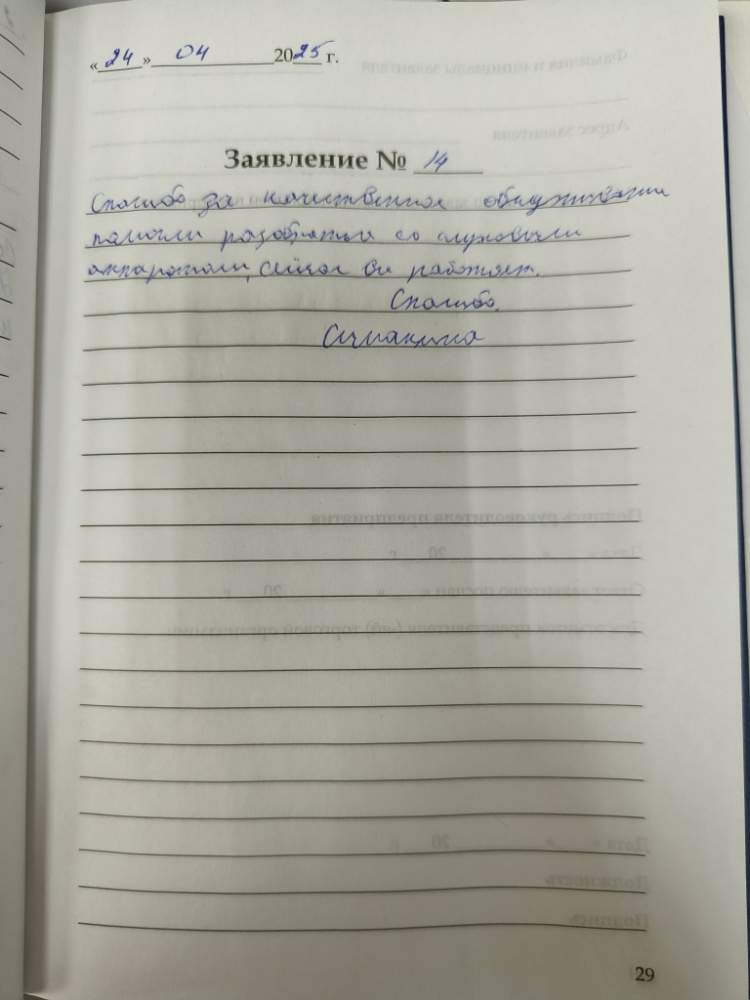 «24» 04 2025 г.
Заявление № 14
Спасибо за качественное обслуживание
помогли разобраться со слуховыми
аппаратами, сейчас все работает.
Спасибо.
29